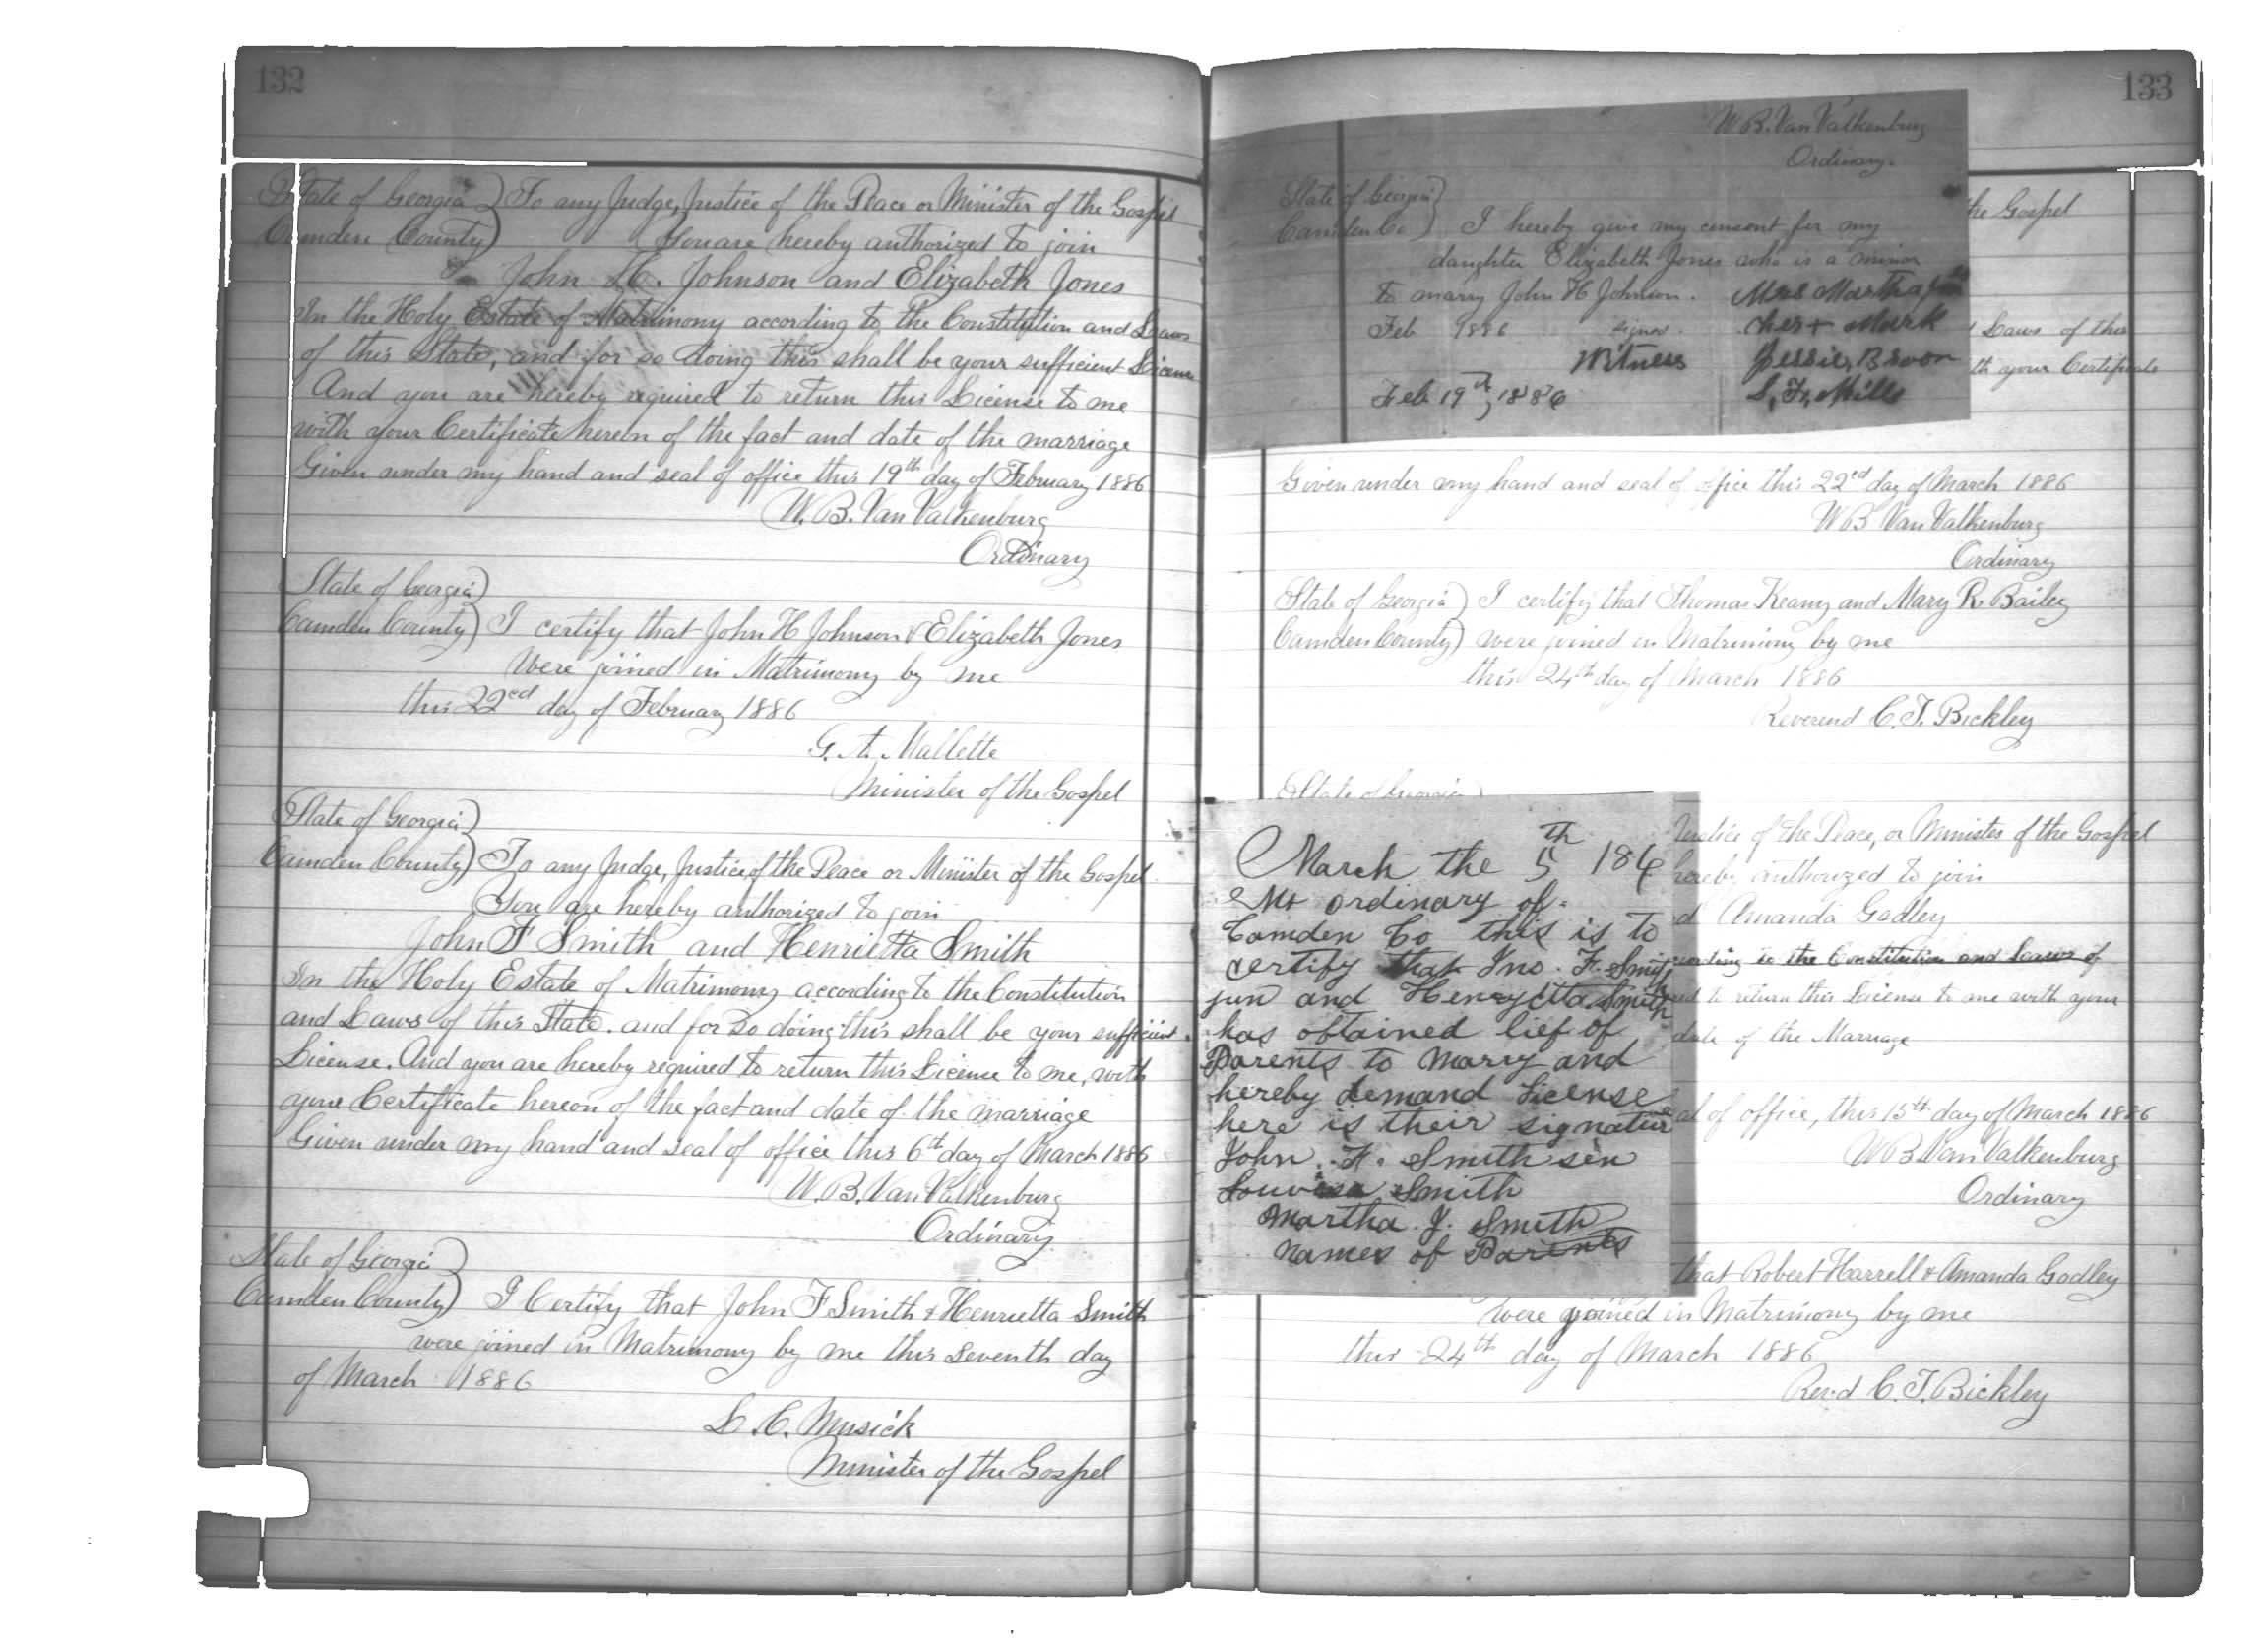 132
State of Georgia) To any Judge, Justice of the Peace or Minister of the Gospel
Camden County) You are hereby authorized to join
John H. Johnson and Elizabeth Jones
In the Holy Estate of Matrimony according to the Constitution and Laws
of this State, and for so doing this shall be your sufficient License
And you are hereby required to return this License to me
with your Certificate hereon of the fact and date of the marriage
Given under my hand and seal of office this 19th day of February 1886
W. B. Van Valkenburg
Ordinary
State of Georgia)
Camden County) I certify that John H Johnson & Elizabeth Jones
Were joined in Matrimony by me
this 22ed day of February 1886
G. A. Mallette
Minister of the Gospel
State of Georgia)
Camden County) To any Judge, Justice of the Peace or Minister of the Gospel
You are hereby authorized to join
John F Smith and Henrietta Smith
In the Holy Estate of Matrimony according to the Constitution
and Laws of this State. and for so doing this shall be your sufficient
License. And you are hereby required to return this License to me, with
your Certificate hereon of the fact and date of the marriage
Given under my hand and seal of office this 6th day of March 1886
W. B. Van Valkenburg
Ordinary
State of Georgia)
Camden County) I Certify that John F Smith & Henrietta Smith
were joined in Matrimony by me this seventh day
of March 1886
L. C. Musick
Minister of the Gospel
133
W. B. Van Valkenburg
Ordinary.
State of Georgia)
Camden Co) I hereby give my consent for my
daughter Elizabeth Jones who is a minor
to marry John H Johnson. Mrs Martha
Feb 1886 signed. her + Mark
Witness Jessie Broon
Feb 19th, 1886 S, F, Mills
the Gospel
Laws of this
th your Certificate
Given under my hand and seal of office this 22ed day of March 1886
W B Van Valkenburg
Ordinary
State of Georgia) I certify that Thomas Keany and Mary R. Bailey
Camden County) were joined in Matrimony by me
this 24th day of March 1886
Reverend C. T. Bickley
State of Georgia)
March the 5th 186
Mr ordinary of.
Camden Co this is to
certify that Jno. F. Smith
jun and Henrycitta Smith
has obtained lief of
Parents to marry and
hereby demand License
here is their signature
John. F. Smith sen
Louvisa Smith
Martha. J. Smith
names of Parents
Justice of the Peace, or Minister of the Gospel
hereby authorized to join
d Amanda Godley
cording to the Constitution and Laws of
ed to return this License to me with your
date of the Marriage
al of office, this 15th day of March 1886
W B Van Valkenburg
Ordinary
that Robert Harrell & Amanda Godley
were joined in Matrimony by me
this 24th day of March 1886
Revd C. T. Bickley